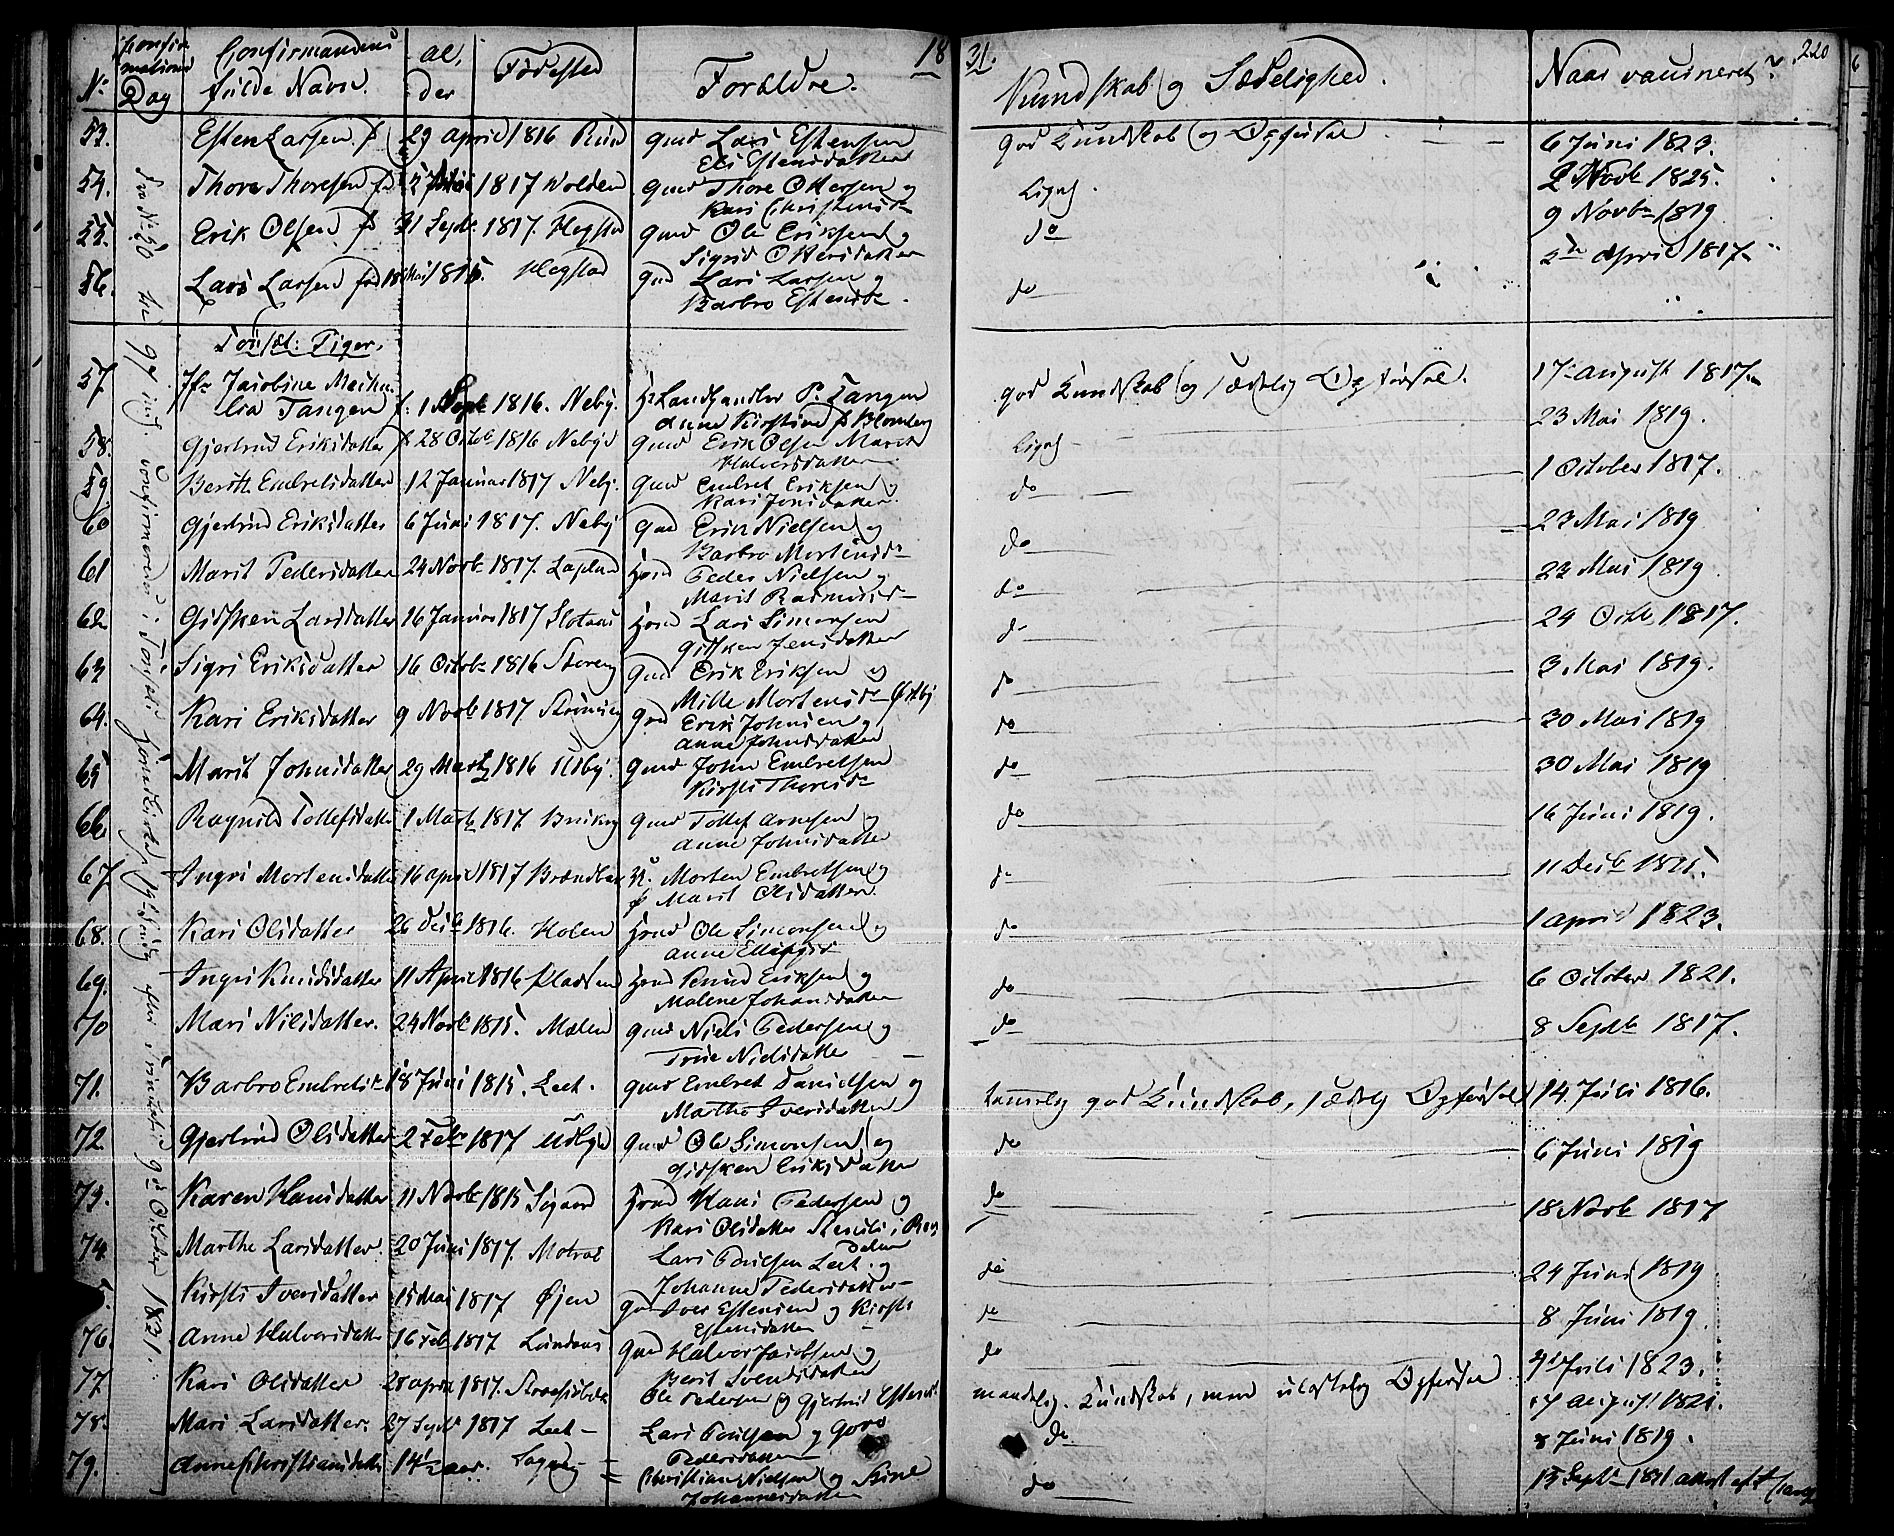 18 31. 220
No Confirmations Dag Confirmandens fulde Navn. Alder Fødested Forældre. Kundskab og Sædelighed. Naar vaccineret?
53. Esten Larsen f 29 April 1816 Gmd Lars Estensen god Kundskab og Opførsel 6 Juni 1823.
Eli Estensdatter
54. Thore Thoresen 1817 Volden Gmd Thore Ottersen og Liges. 2 Novb 1825.
Kari Christensd
55. Erik Olsen f 31 Septr 1817. Hegstad Gmd Ole Eriksen og do 9 Novbr 1819
Sigrid Ottersdatter
56. Lars Larsen fød 18 Mai 1815. Hegstad Gmd Lars Larsen og do 5te April 1817
Barbro Estensdr.
Tønset: Piger.
57. Jfr Jacobine Mathilia Tangen f. 1 Sept 1816. Neby. Hr Landhandler P. Tangen god Kundskab og sædelig Opførsel. 17 August 1817.
Anne Kirstine f Blomberg
58. Gjertrud Eriksdatter f 28 Octbr 1816 Neby Gmd Erik Olsen Marit Ligel 23 Mai 1819.
Halvorsdatter
59 Berith Embretsdatter 12 Januar 1817 Neby. Gmd Embret Eriksen og do 1 October 1817.
Kari Jonsdatter.
60 Gjertrud Eriksdatter 6 Juni 1817. Neby Gmd Erik Nielsen og do 23 Mai 1819
Barbro Mortensdr
61 Marit Pedersdatter 24 Novbr 1817. Husmd Peder Nielsen og do 23 Mai 1819
Marit Rasmusd
62 Gidsken Larsdatter 16 Januar 1817 Husmd Lars Simensen do 24 Octb. 1817.
Gidsken Jensdatter
63 Sigri Eriksdatter 16 Octobr 1816 Storeng Gmd Erik Eriksen og do 3 Mai 1819.
Mille Mortensdr Østby
64. Kari Eriksdatter 9 Novb 1817 Gmd Erik Johnsen og do 30 Mai 1819
Anne Johnsdatter
65 Marit Johnsdatter 29 Marts 1816 Utby. Gmd John Embretsen do 30 Mai 1819
Kirsti Thoresdr
66. Ragnild Tollefsdatter 1 Marts 1817 Gmd Tollef Arnesen og do 16 Juni 1819.
Anne Johnsdatter
67. Ingri Mortensdatter 16 April 1817 Morten Embretsen og do 11 Decb 1825.
Marit Olsdatter
68. Kari Olsdatter 26 Decb 1816. Holen Husmd Ole Simonsen og do 1 April 1823.
Anne
69. Ingri Knudsdatter 11 April 1816 Pladsen Husmd Knud Eriksen og do 6 October 1821.
Malene Johansdatter
70 Mari Nilsdatter. 24 Novb 1815. Mælen Gmd Niels Pedersen og do 8 Septb 1817.
Trine Nielsdatter
71. Barbro Embretsdr 18 Juni 1815. Leet. Gmd Embret Danielsen og temmelig god Kundskab, sædelig Opførsel 14 Juli 1816.
Marthe Iversdatter
72 Gjertrud Olsdatter 2 Febr 1817 Udby Gmd Ole Simonsen og do 6 Juni 1819
Gidsken Eriksdatter
73. Karen Hansdatter 11 Novb 1815 Husmd Hans Pedersen og do 18 Novb 1817
Kari Olsdatter
74. Marthe Larsdatter. 20 Juni 1817. Motrøe Lars Poulsen Leet og do 24 Juni 1819
Johanne Pedersdatter
Kirsti Iversdatter 15 Mai 1817 Øjen Gmd Iver Estensen og Kirsti do 8 Juni 1819
Estensdatter
76. Anne Halvorsdatter 16 Feb 1817 Gmd Halvor Jacobsen og do Juli 1823.
Berit Svendsdatter
77. Kari Olsdatter 28 April 1817. Ole Pedersen og Gjertrud Estensd. maadelig Kundskab, men ulastelig Opførsel 17 August 1821.
78. Mari Larsdatter. 27 Septr 1817 Leet Lars Poulsen og Goro do 8 Juni 1819.
Pedersdatter
79. Anne Christiansdatter 14½ aar. Christian Nielsen og Stine do 15 Septbr 1831
Johannesdatter
Fra No 50 til 97 incl. confirmerede i Tønset Hovedkirke 19de Søndag efter Trinitatis 9de October 1831.